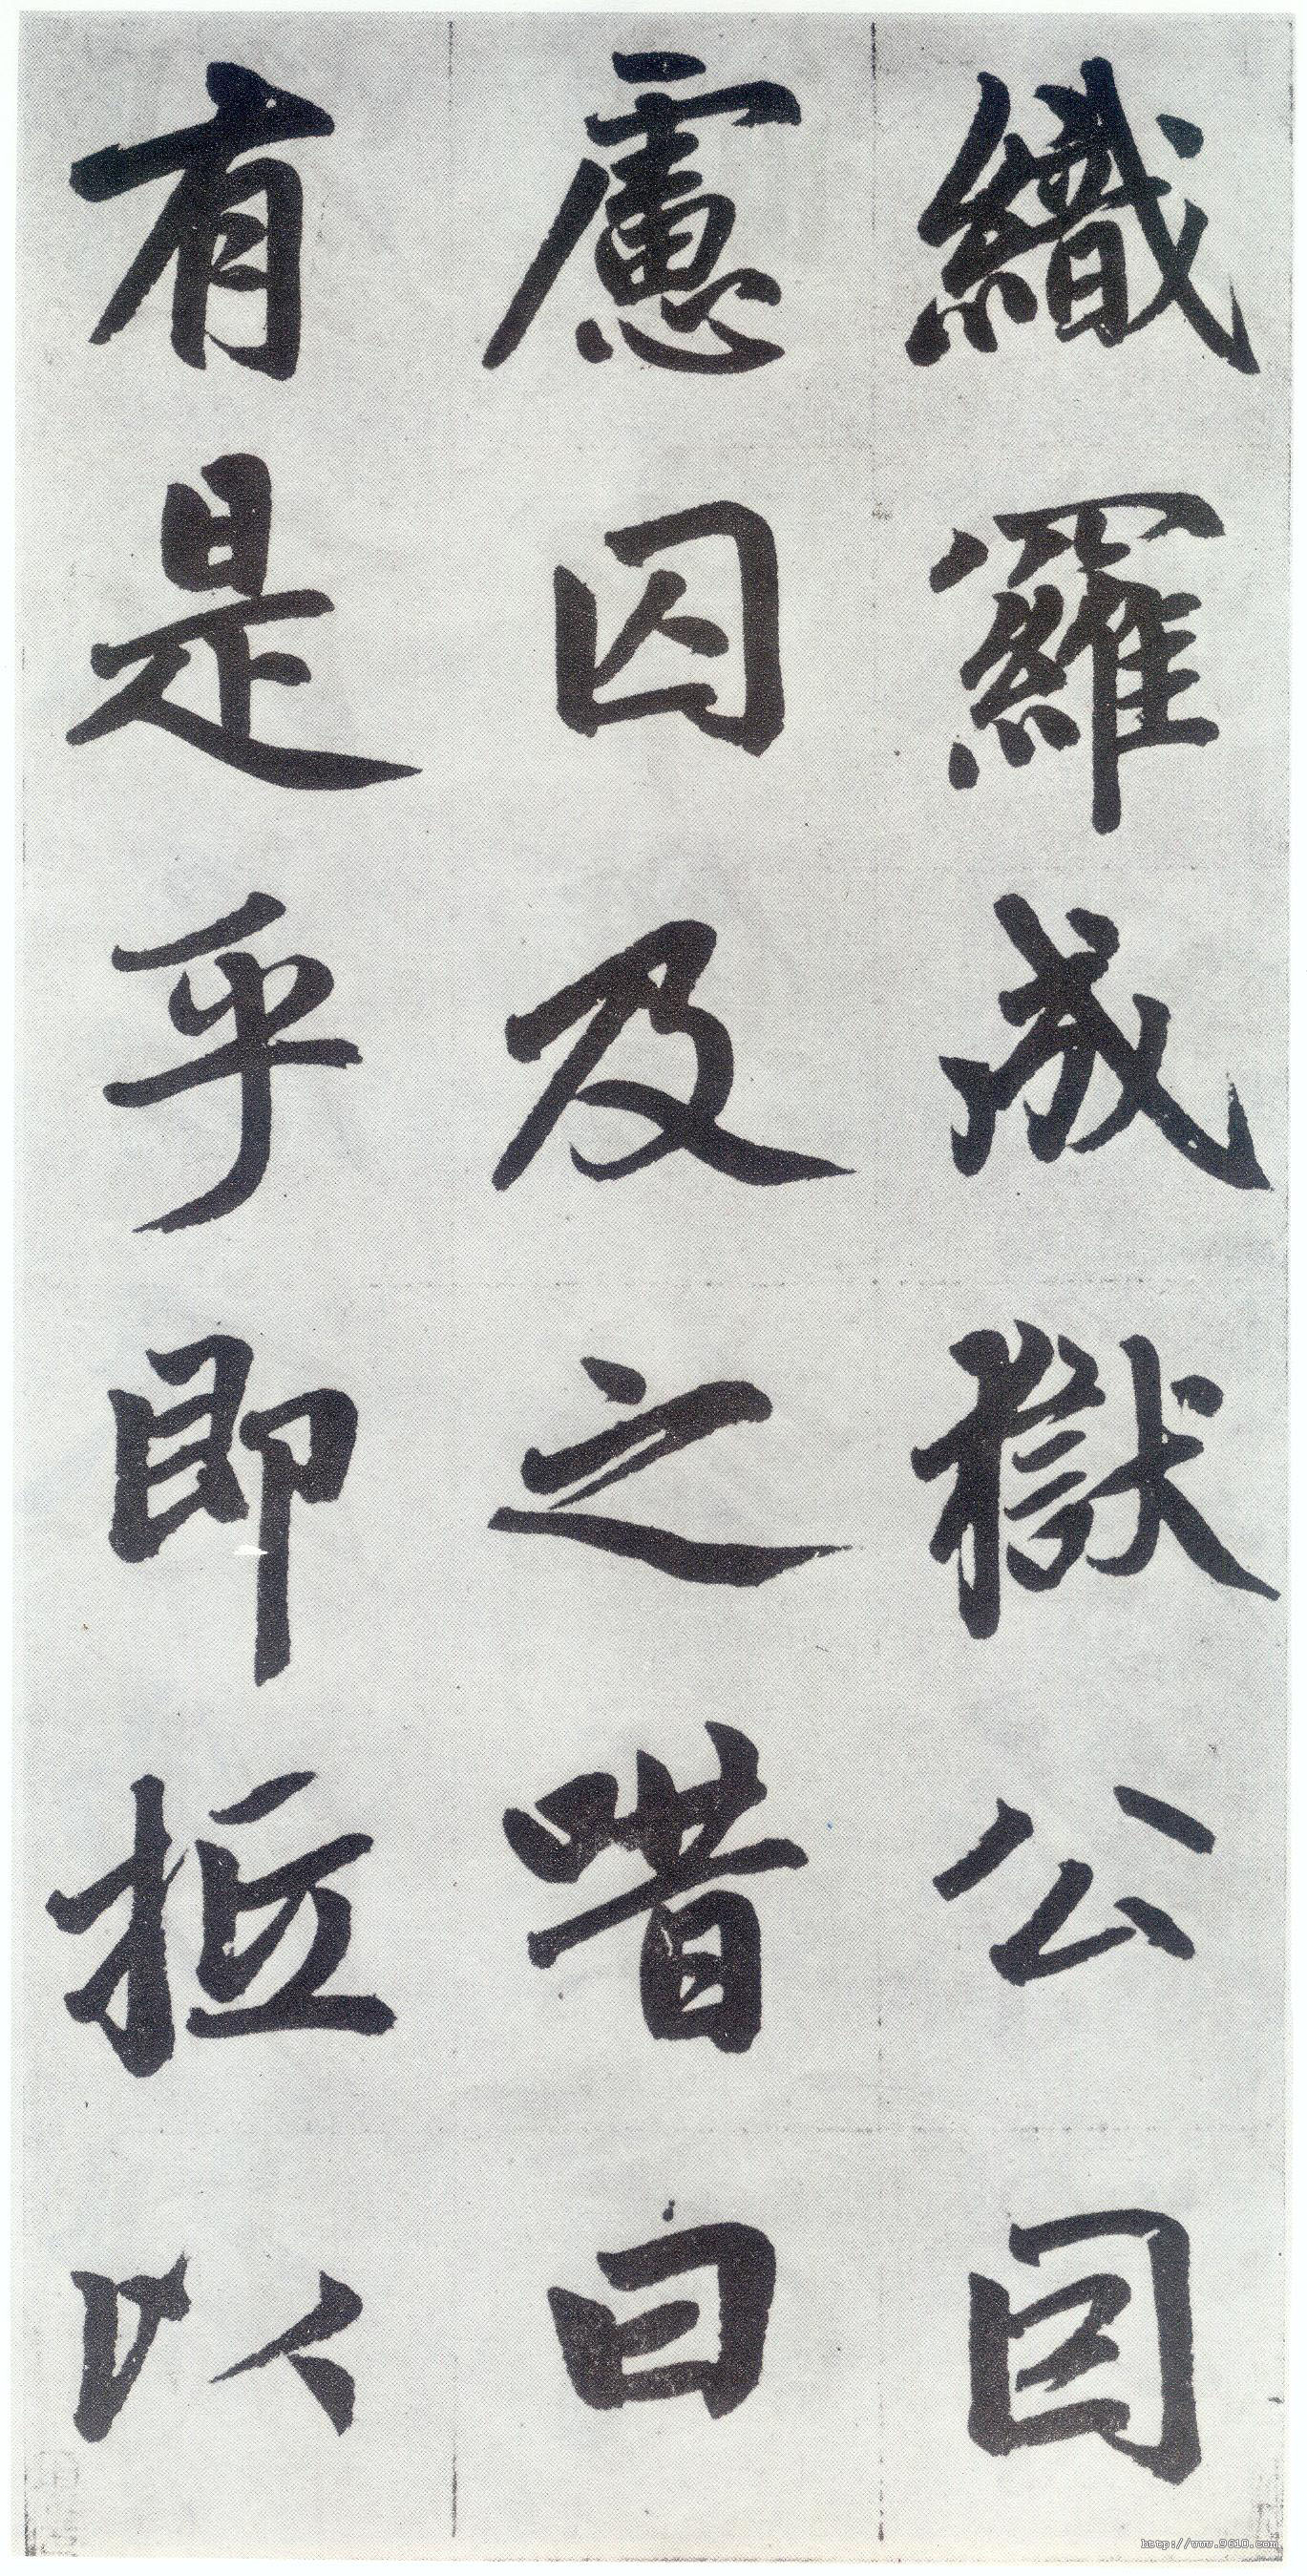 織羅成獄公因
慮囚及之唶曰
有是乎即抵以
http://www.9610.com